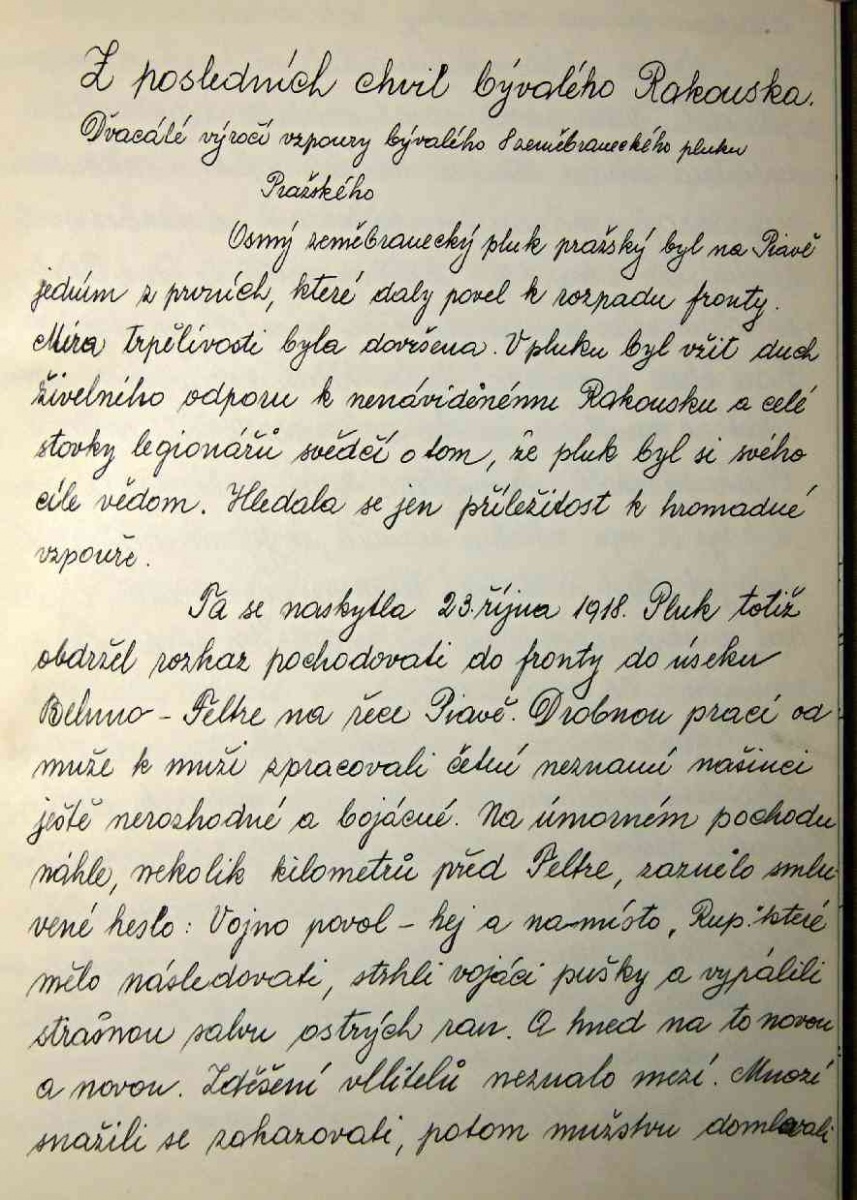 Z posledních chvil bývalého Rakouska.
Dvacáté výročí vzpoury bývalého 8 zeměbraneckého pluku
Pražského
Osmý zeměbranecký pluk pražský byl na Piavě
jedním z prvních, které daly povel k rozpadu fronty.
Míra trpělivosti byla dovršena. V pluku byl vžit duch
živelného odporu k nenáviděnému Rakousku a celé
stovky legionářů svědčí o tom, že pluk byl si svého
cíle vědom. Hledala se jen příležitost k hromadné
vzpouře.
Ta se naskytla 23. října 1918. Pluk totiž
obdržel rozkaz pochodovati do fronty do úseku
Belluno - Feltre na řece Piavě. Drobnou prací od
muže k muži zpracovali četní neznámí našinci
ještě nerozhodné a bojácné. Na úmorném pochodu
náhle, nekolik kilometrů před Feltre, zaznělo smlu-
vené heslo: Vojno povol - hej a na místo „Rup." které
mělo následovati, strhli vojáci pušky a vypálili
strašnou salvu ostrých ran. A hned na to novou
a novou. Zděšení vllitelů neznalo mezí. Mnozí
snažili se zakazovati, potom mužstvu domlouvali